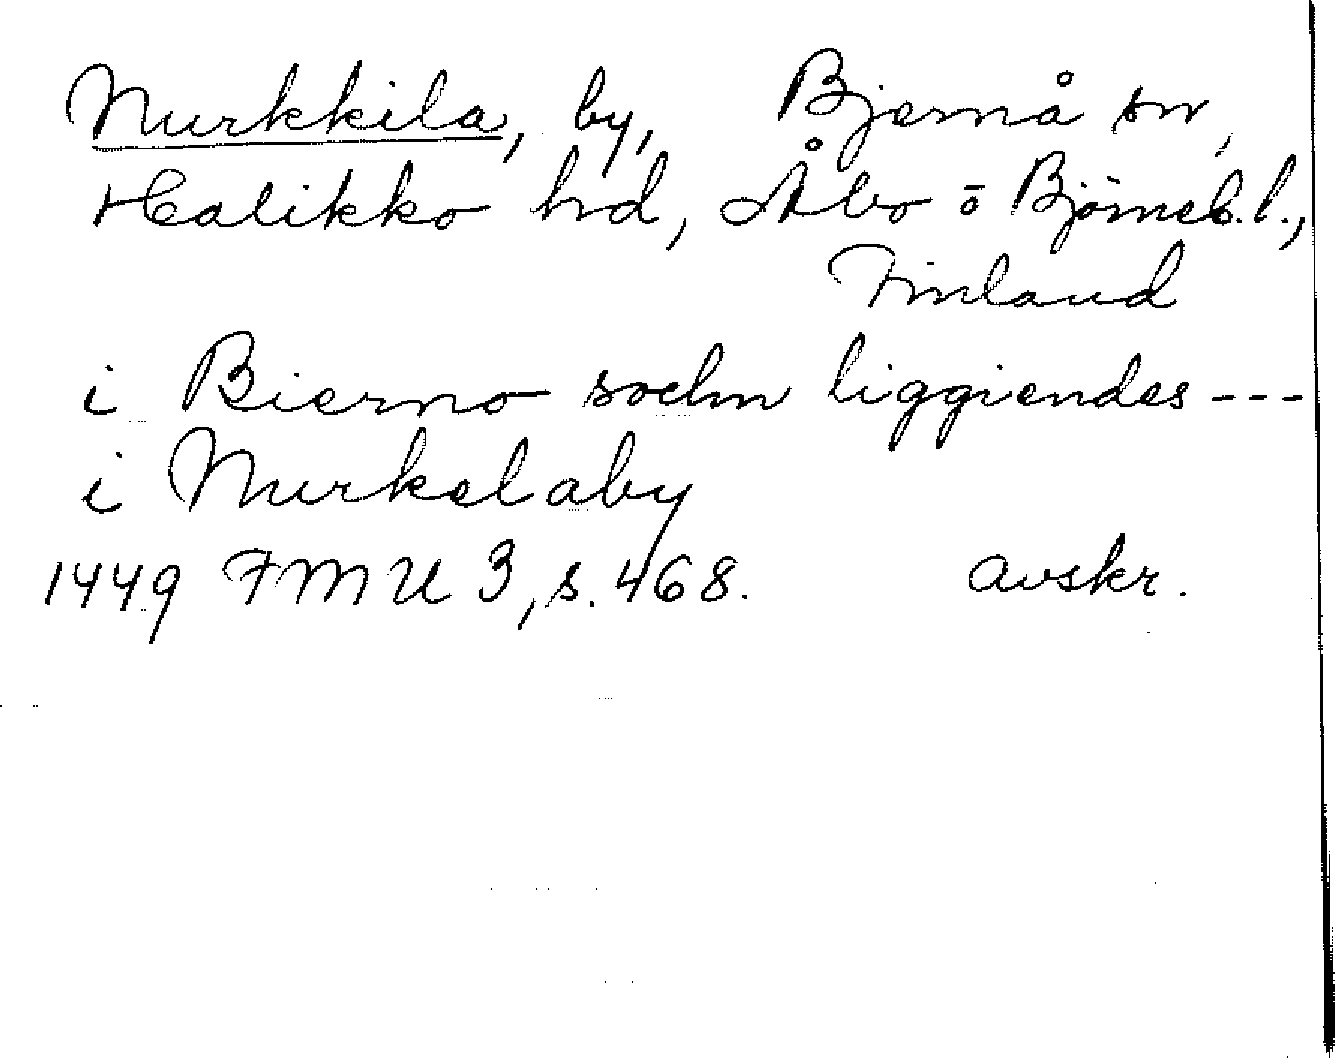 Nurkkila, by, Bjernå sn,
Halikko hd, Åbo o Björneb. l.,
Finland
i Bierno sochn liggiendes ---
i Nurkelaby
1449 FMU 3, s. 468. avskr.